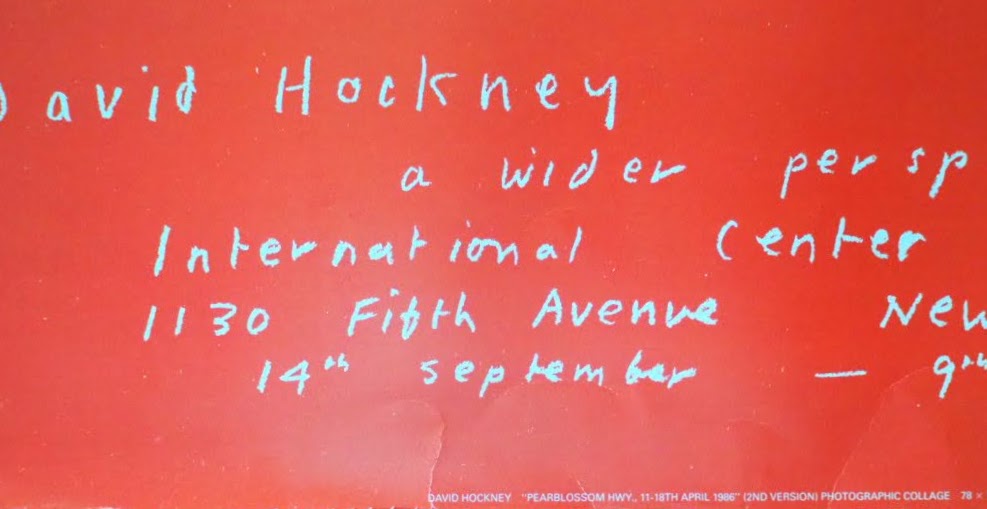 David Hockney
a wider persp
International Center
1130 Fifth Avenue New
14th september — 9th
DAVID HOCKNEY "PEARBLOSSOM HWY., 11-18TH APRIL 1986" (2ND VERSION) PHOTOGRAPHIC COLLAGE 78 ×